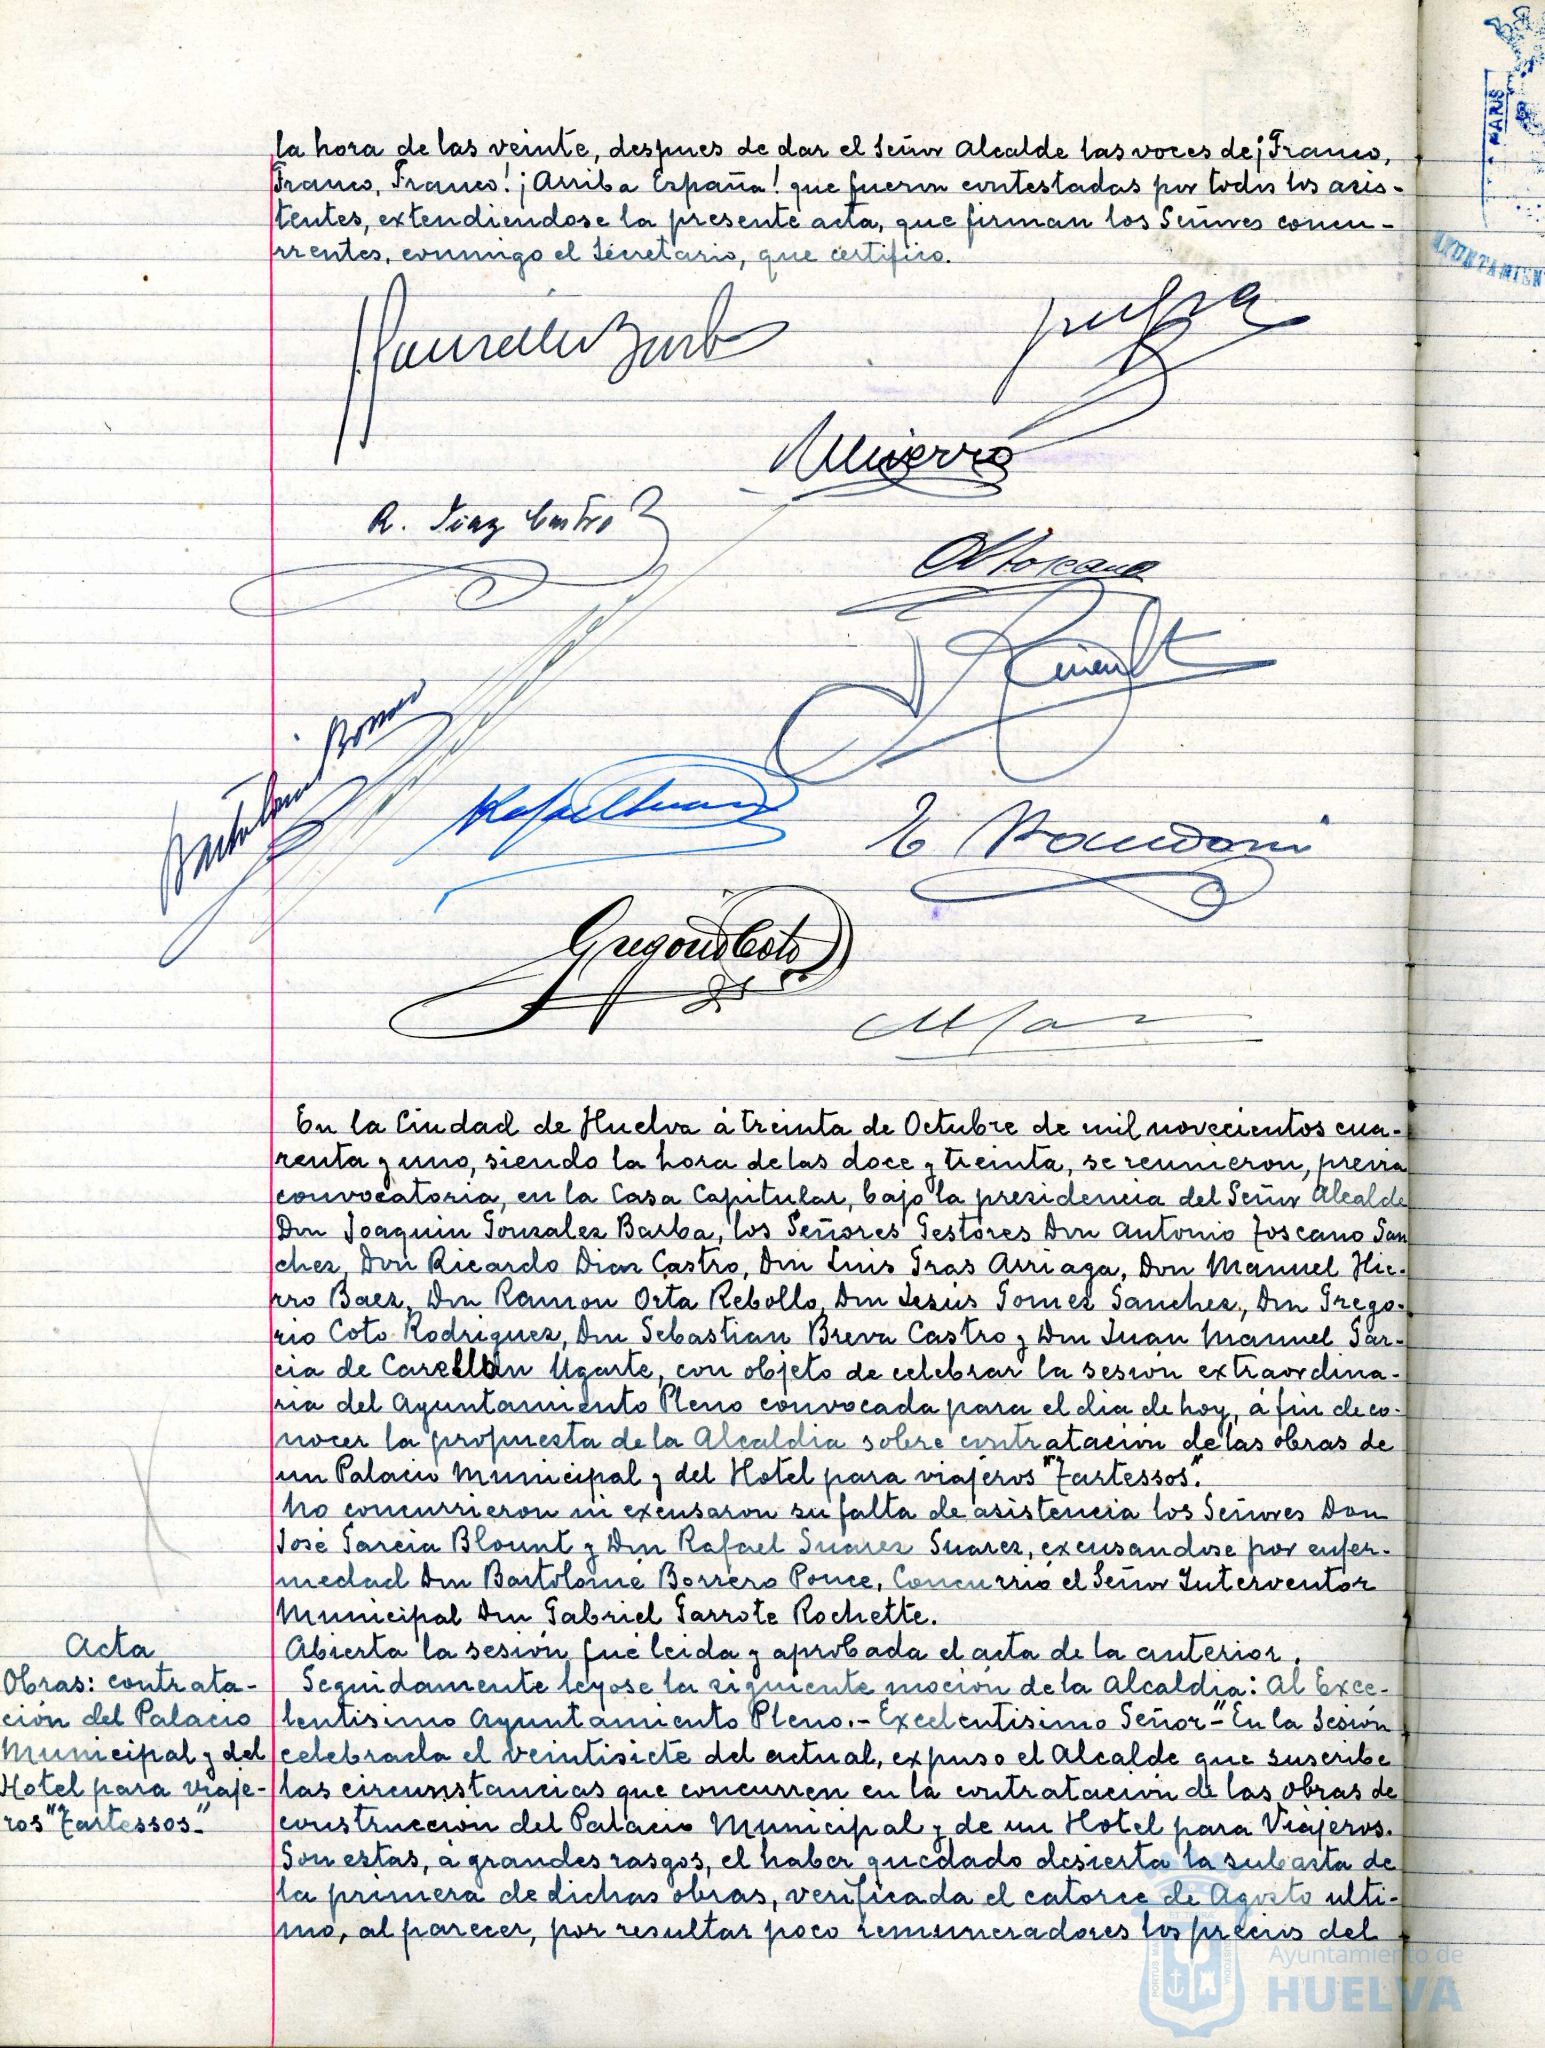 la hora de las veinte, despues de dar el Señor Alcalde las voces de ¡Franco,
Franco, Franco! ¡Arriba España! que fueron contestadas por todos los asis-
tentes, extendiendose la presente acta, que firman los Señores concu-
rrentes, conmigo el Secretario, que certifico.
R. Diaz Castro
Bartolomé Borrero
Gregorio Coto
En la Ciudad de Huelva á treinta de Octubre de mil novecientos cua-
renta y uno, siendo la hora de las doce y treinta, se reunieron, previa
convocatoria, en la Casa Capitular, bajo la presidencia del Señor Alcalde
Don Joaquin Gonzalez Barba, los Señores Gestores Don Antonio Toscano San
chez, Don Ricardo Diaz Castro, Don Luis Gras Arriaga, Don Manuel Hie-
rro Baez, Don Ramon Orta Rebollo, Don Jesús Gomez Sanchez, Don Grego-
rio Coto Rodriguez, Don Sebastian Breva Castro y Don Juan Manuel Gar-
cia de Carellán Ugarte, con objeto de celebrar la sesión extraordina-
ria del Ayuntamiento Pleno convocada para el dia de hoy, á fin de co-
nocer la propuesta de la Alcaldia sobre contratación de las obras de
un Palacio Municipal y del Hotel para viajeros "Tartessos".
No concurrieron ni excusaron su falta de asistencia los Señores Don
José Garcia Blount y Don Rafael Suarez Suarez, excusandose por enfer-
medad Don Bartolomé Borrero Ponce, Concurrió el Señor Interventor
Municipal Don Gabriel Garrote Rochette.
Acta
Abierta la sesión fué leida y aprobada el acta de la anterior.
Obras: contrata-
ción del Palacio
Municipal y del
Hotel para viaje-
ros "Tartessos".
Seguidamente leyose la siguiente moción de la Alcaldia: Al Exce-
lentisimo Ayuntamiento Pleno.- Excelentisimo Señor- "En la Sesión
celebrada el veintisiete del actual, expuso el Alcalde que suscribe
las circunstancias que concurren en la contratación de las obras de
construcción del Palacio Municipal y de un Hotel para Viajeros.
Son estas, a grandes rasgos, el haber quedado desierta la subasta de
la primera de dichas obras, verificada el catorce de Agosto ulti-
mo, al parecer, por resultar poco remuneradores los precios del
Ayuntamiento de
HUELVA